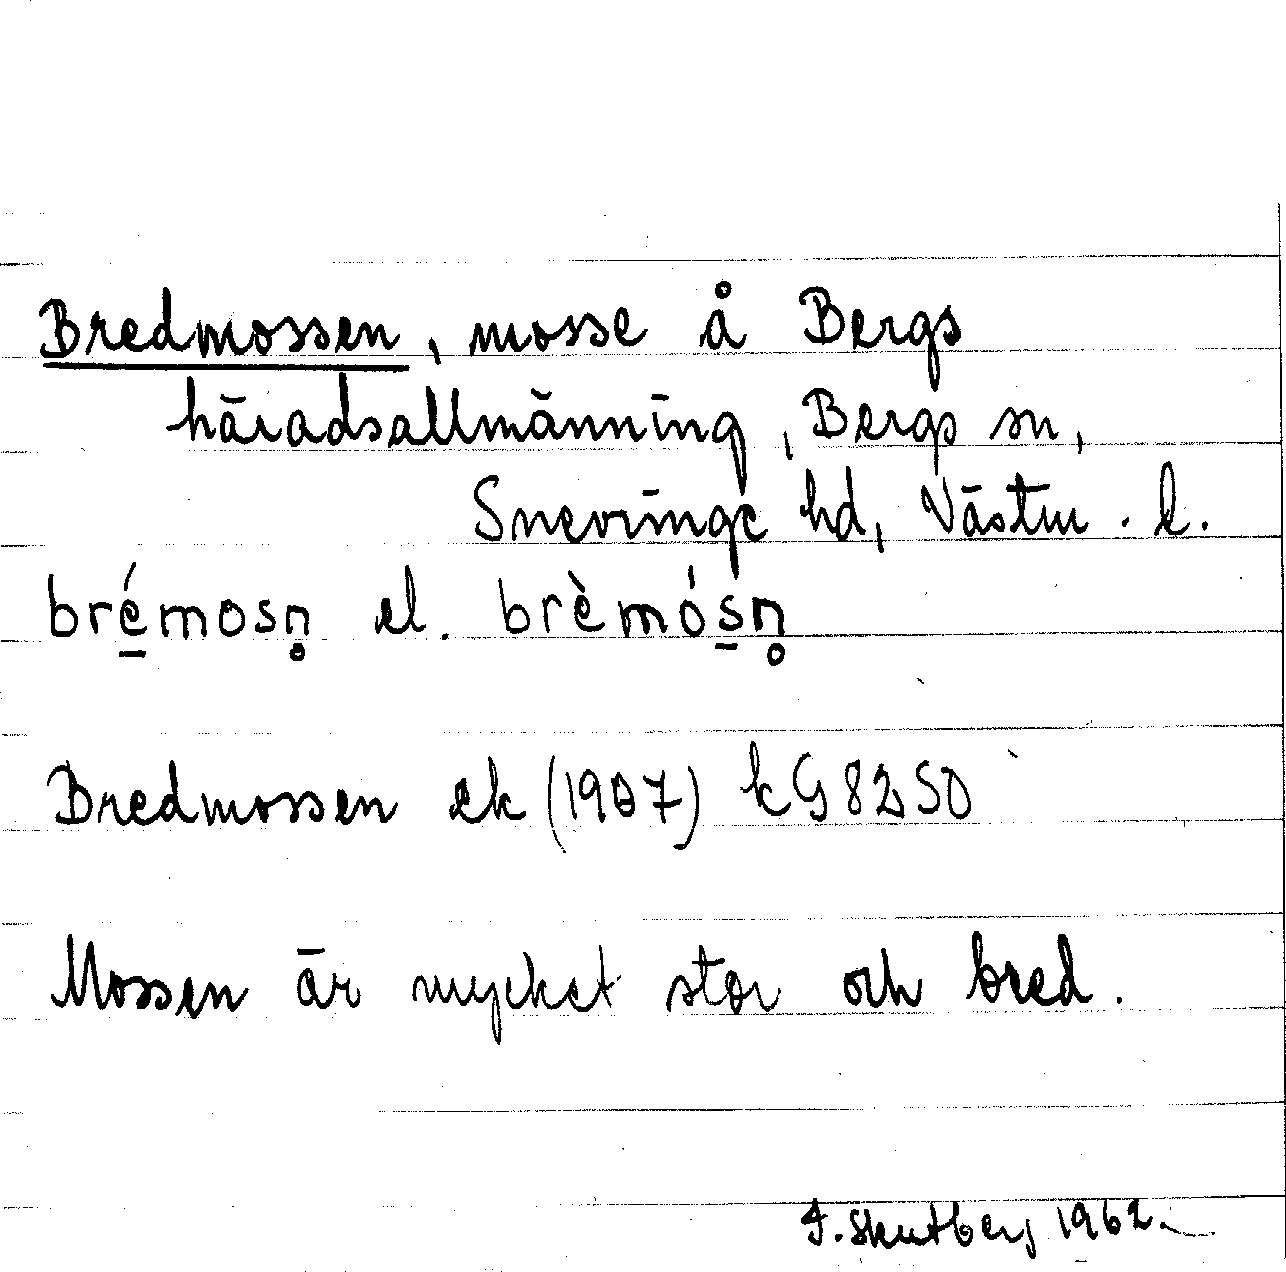 Bredmossen, mosse å Bergs
häradsallmänning, Bergs sn,
Snevringe hd, Västm. l.
brémosn̥ el. brèmósn̥
Bredmossen ek (1907) kG 8250
Mossen är mycket stor och bred.
F. Skutberg 1962.